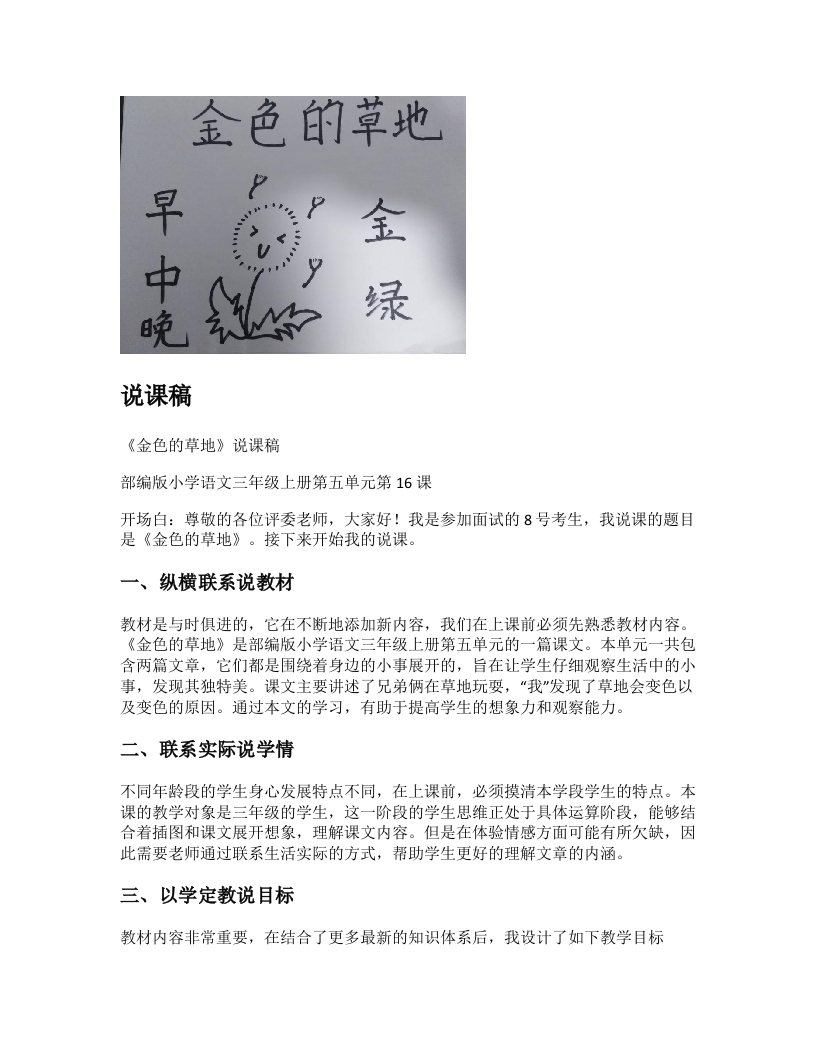 金色的草地
早
金
中
绿
晚
说课稿
《金色的草地》说课稿
部编版小学语文三年级上册第五单元第 16 课
开场白：尊敬的各位评委老师，大家好！我是参加面试的 8 号考生，我说课的题目
是《金色的草地》。接下来开始我的说课。
一、纵横联系说教材
教材是与时俱进的，它在不断地添加新内容，我们在上课前必须先熟悉教材内容。
《金色的草地》是部编版小学语文三年级上册第五单元的一篇课文。本单元一共包
含两篇文章，它们都是围绕着身边的小事展开的，旨在让学生仔细观察生活中的小
事，发现其独特美。课文主要讲述了兄弟俩在草地玩耍，“我”发现了草地会变色以
及变色的原因。通过本文的学习，有助于提高学生的想象力和观察能力。
二、联系实际说学情
不同年龄段的学生身心发展特点不同，在上课前，必须摸清本学段学生的特点。本
课的教学对象是三年级的学生，这一阶段的学生思维正处于具体运算阶段，能够结
合着插图和课文展开想象，理解课文内容。但是在体验情感方面可能有所欠缺，因
此需要老师通过联系生活实际的方式，帮助学生更好的理解文章的内涵。
三、以学定教说目标
教材内容非常重要，在结合了更多最新的知识体系后，我设计了如下教学目标